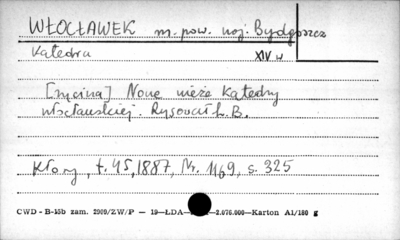 WŁOCŁAWEK m. pow. woj. Bydgoszcz
Katedra XIV w
[rycina] Nowe wieże Katedry
włocławskiej. Rysował L. B.
Kłosy, t. 45, 1887, Nr. 1169, s. 325
CWD - B-15b zam. 2909/ZW/P — 19—ŁDA— —2.076.000—Karton A1/180 g